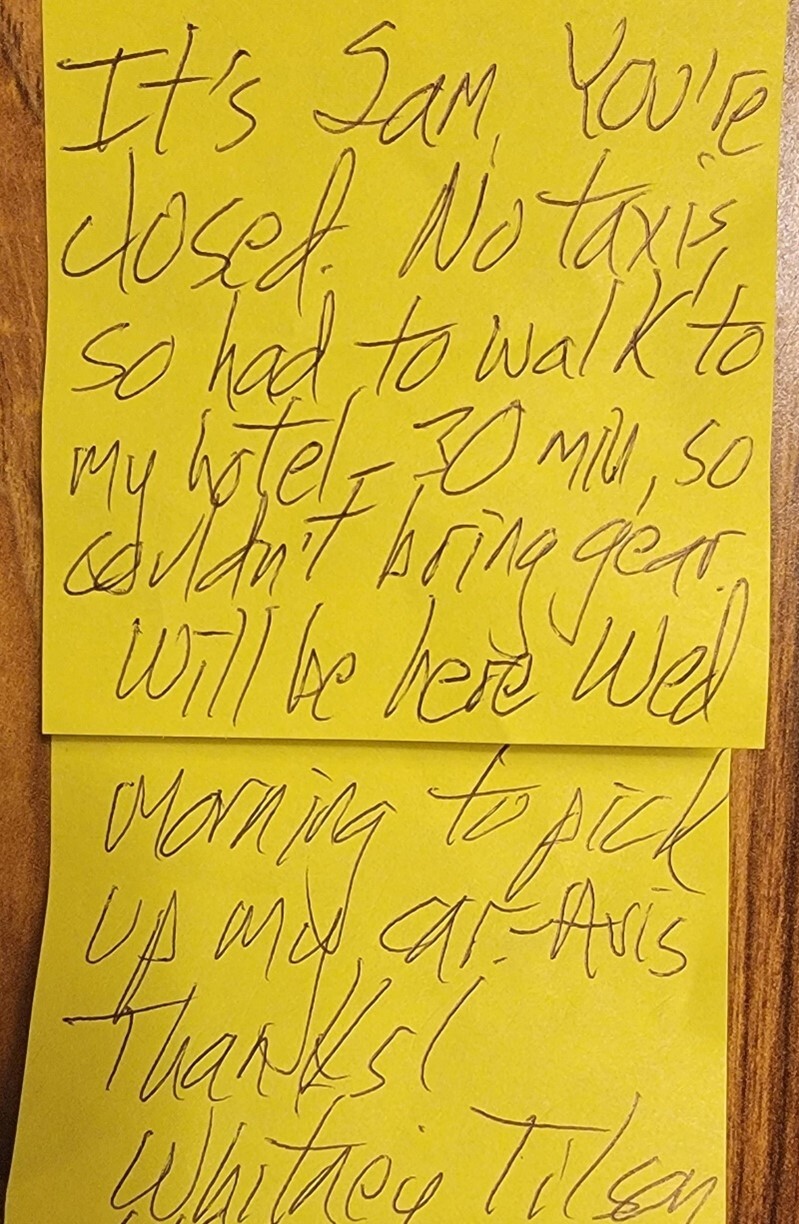 It's 5am. You're
closed. No taxis,
so had to walk to
my hotel - 30 min, so
couldn't bring gear.
Will be here Wed
morning to pick
up my car - Avis
Thanks!
Whitney Tilson